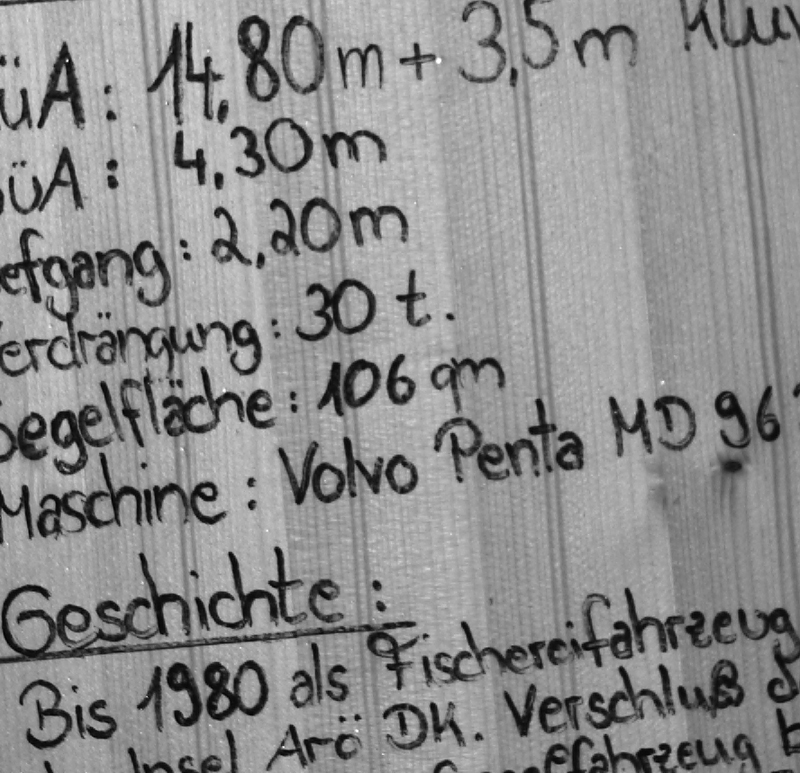 üA: 14,80m + 3,5m Klüv
üA: 4,30m
efgang: 2,20m
erdrängung: 30 t.
Segelfläche: 106 qm
Maschine: Volvo Penta MD 96
Geschichte:
Bis 1980 als Fischereifahrzeug
Insel Arö DK. Verschluß